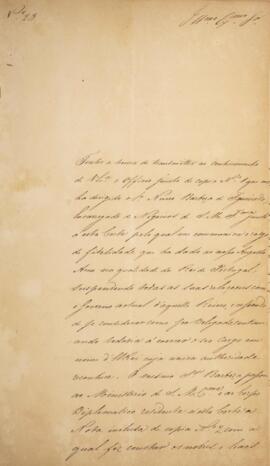 Nº 23
Illmo Exmo Sr
Tenho a honra de transmittir ao conhecimento
de V. Exª o Officio junto de copia Nº 1 que me
ha dirigido o Sr Nuno Barboza de Figueiredo
Encarregado de Negocios de S. M. F. junto
a esta Corte pelo qual me communica o
de fidelidade que ha dado ao nosso Augusto
Amo na qualidade de Rei de Portugal,
suspendendo todas as suas relaçoens com
o Governo actual d'aquelle Reino,
de se considerar como seu Delegado,
todavia a exercer o seu cargo em
nome d'ElRei cuja unica authoridade
reconhece. O mesmo Sr Barboza passou
ao Ministerio de S. M. e ao Corpo
Diplomatico residente n'esta Corte a
Nota incluza de copia Nº 2 com a
qual fez constar a nobre e leal